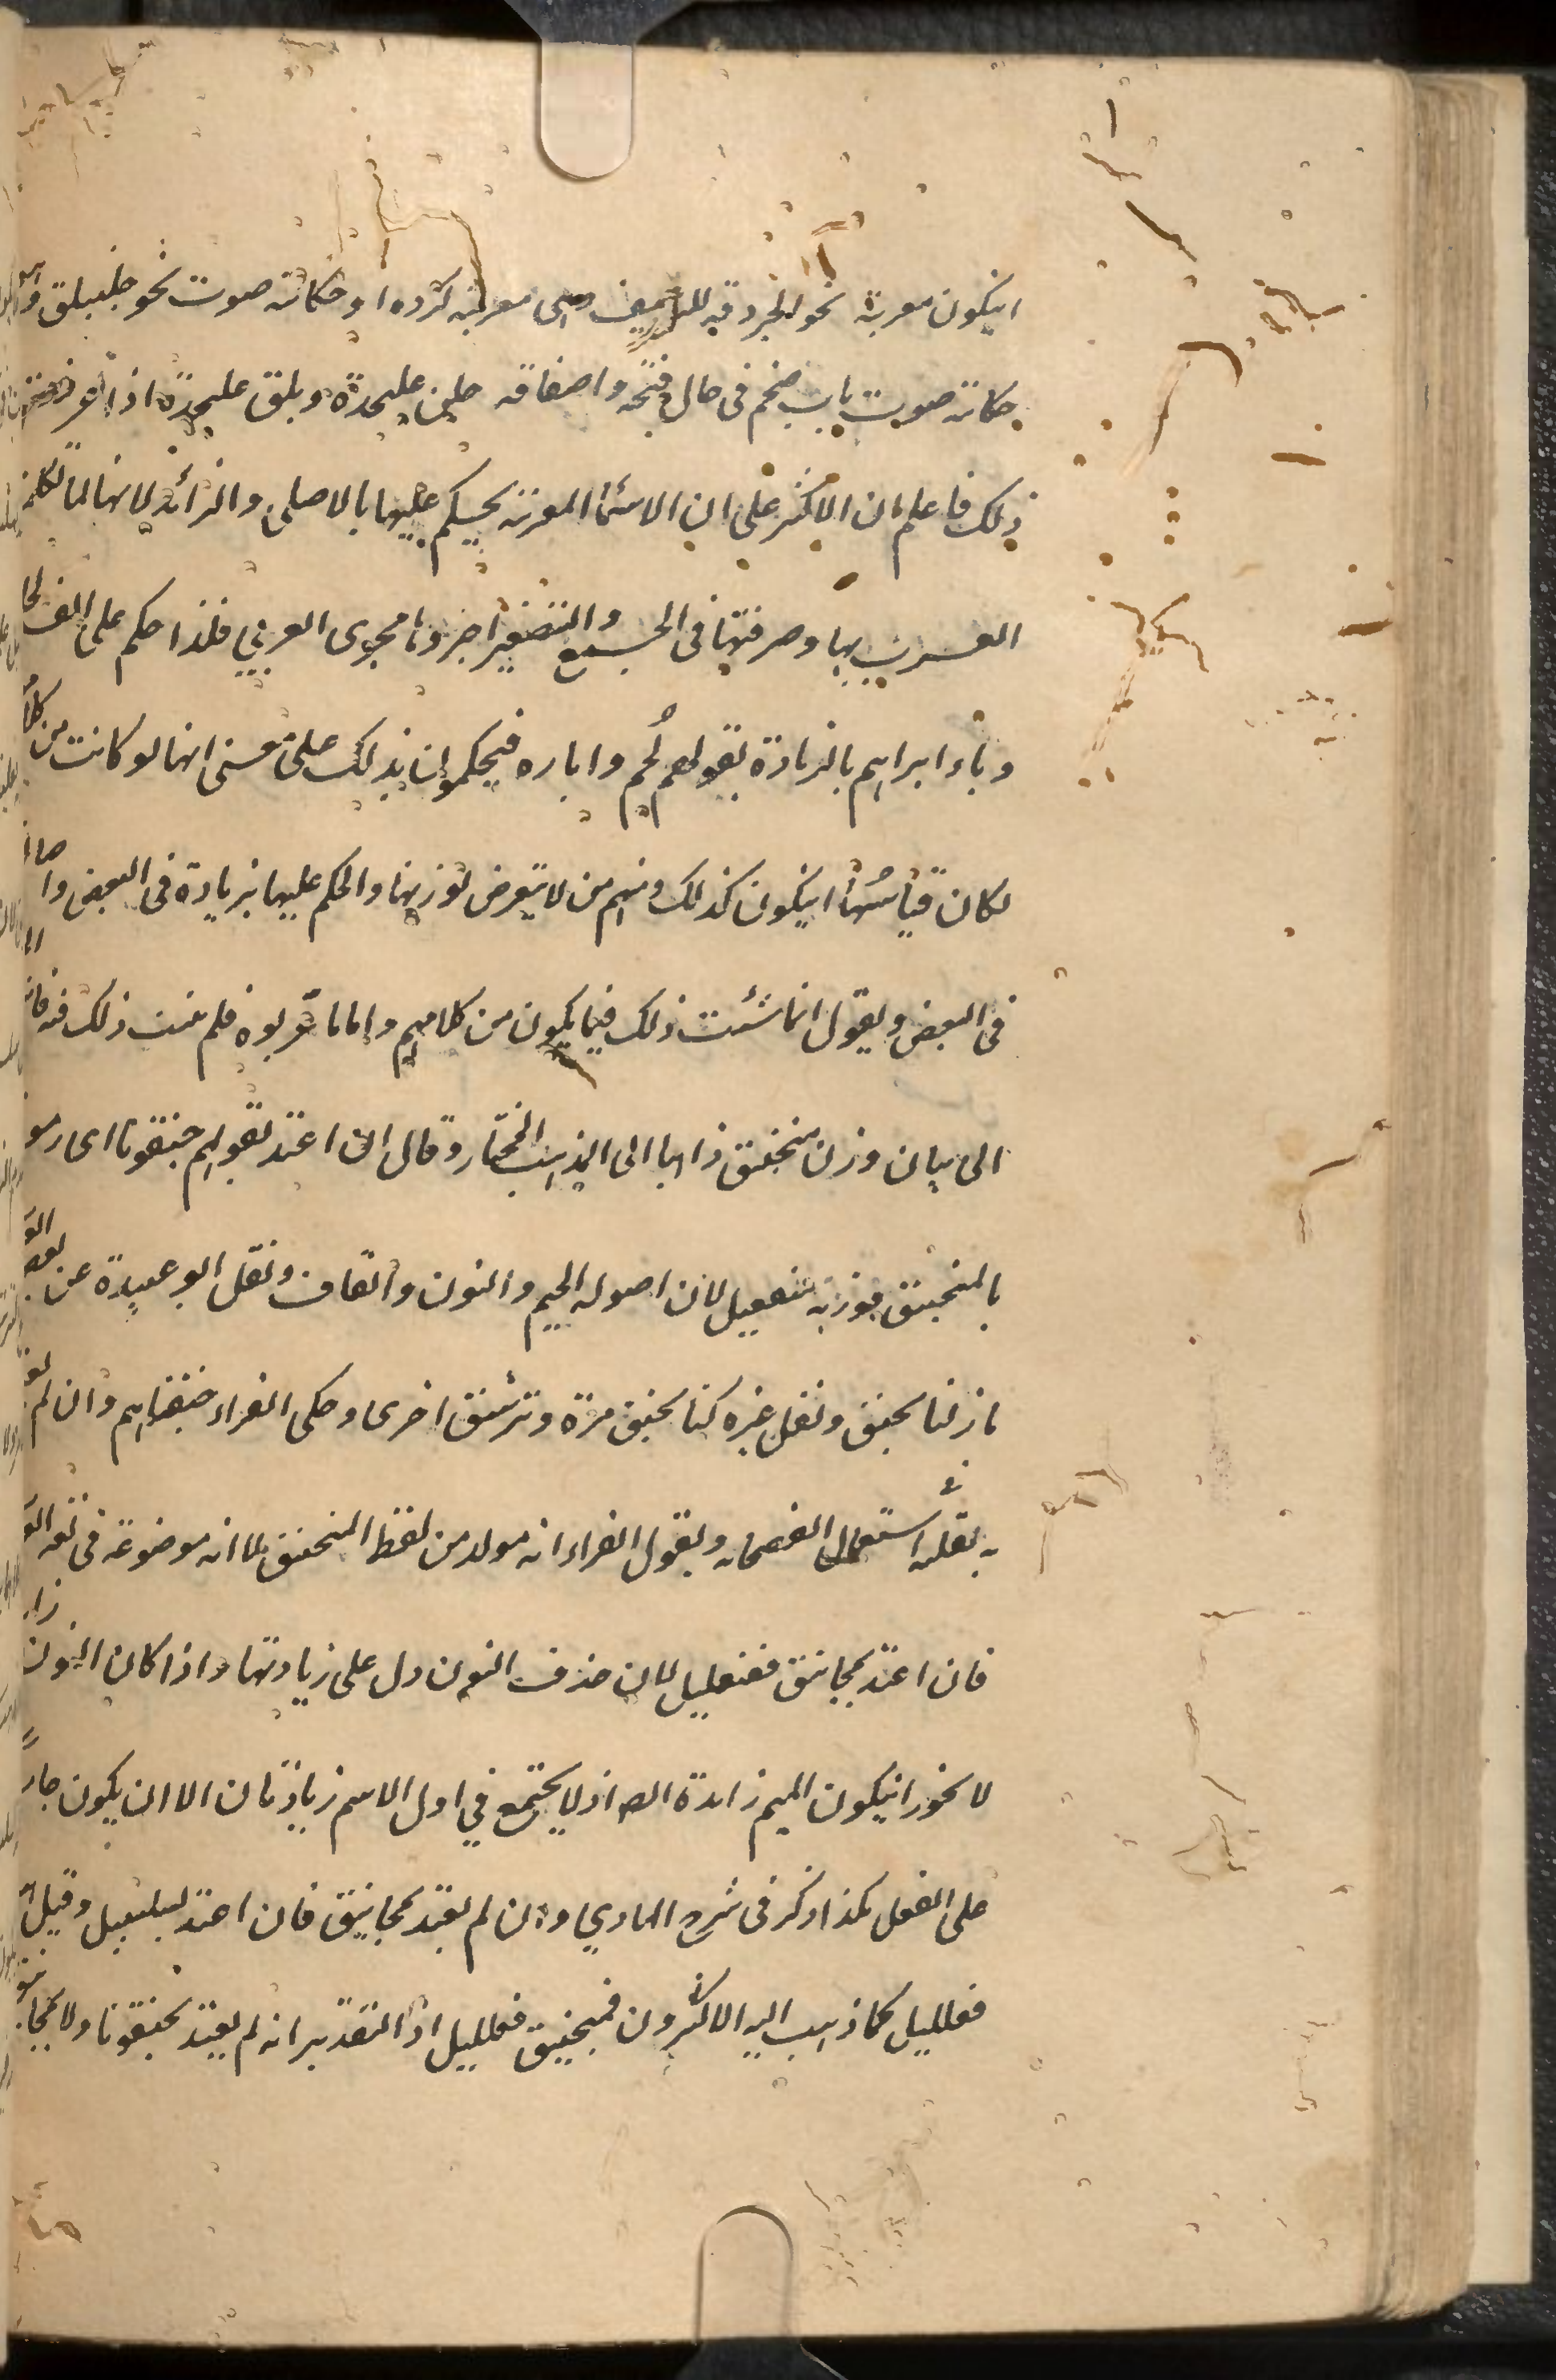 ان يكون معربة نحو الجردقه للرغيف وهى معربة كرده او حكاية صوت نحو جلنبلق
حكاية صوت باب ضخم فى حال فتحه واصفاقه جلن عليحدة وبلق عليحدة اذا عرفت
ذلك فاعلم ان الاكثر على ان الاسماء المعربة يحكم عليها بالاصلى والزائد لانها لما تكلمت
العرب بها وصرفتها فى الجمع والتصغير اجروها مجرى العربي فلذا حكم على الف لجا
وباء ابراهيم بالزيادة بقولهم لُجُم واباره فيحكمون بذلك على معنى انها لو كانت من كلا
لكان قياسُها ان يكون كذلك ومنهم من لا يتعرض لوزنها والحكم عليها بزيادة فى البعض واصا
فى البعض ويقول انما شئت ذلك فيما يكون من كلامهم واما ما عربوه فلم يثبت ذلك فيه
الى بيان وزن منجنيق ذاهبا الى المذهب المختار وقال ان اعتد بقولهم جنقونا اى رمو
بالمنجنيق فوزنه منفعيل لان اصوله الجيم والنون والقاف ونقل ابو عبيدة عن بعض
مازلنا نجنق ونقل غيره كنا نجنق مرة ونرشق اخرى وحكى الفراء جنقناهم وان لم
به لقلة استعمال الفصحاء ويقول الفراء انه مولد من لفظ المنجنيق لما انه موضوعة فى لغه
فان اعتد بمجانيق ففنعليل لان حذف النون دل على زيادتها واذا كان النون زا
لا يجوز ان يكون الميم زايدة ايضا اذ لا يجتمع في اول الاسم زيادتان الا ان يكون جار
على الفعل هكذا ذكر فى شرح الهادي وان لم يعتد بمجانيق فان اعتد بسلسبيل وقيل
فعلليل كما ذهب اليه الاكثرون فمنجنيق فعلليل اذ التقدير انه لم يعتد بجنقونا ولا بمجانيق